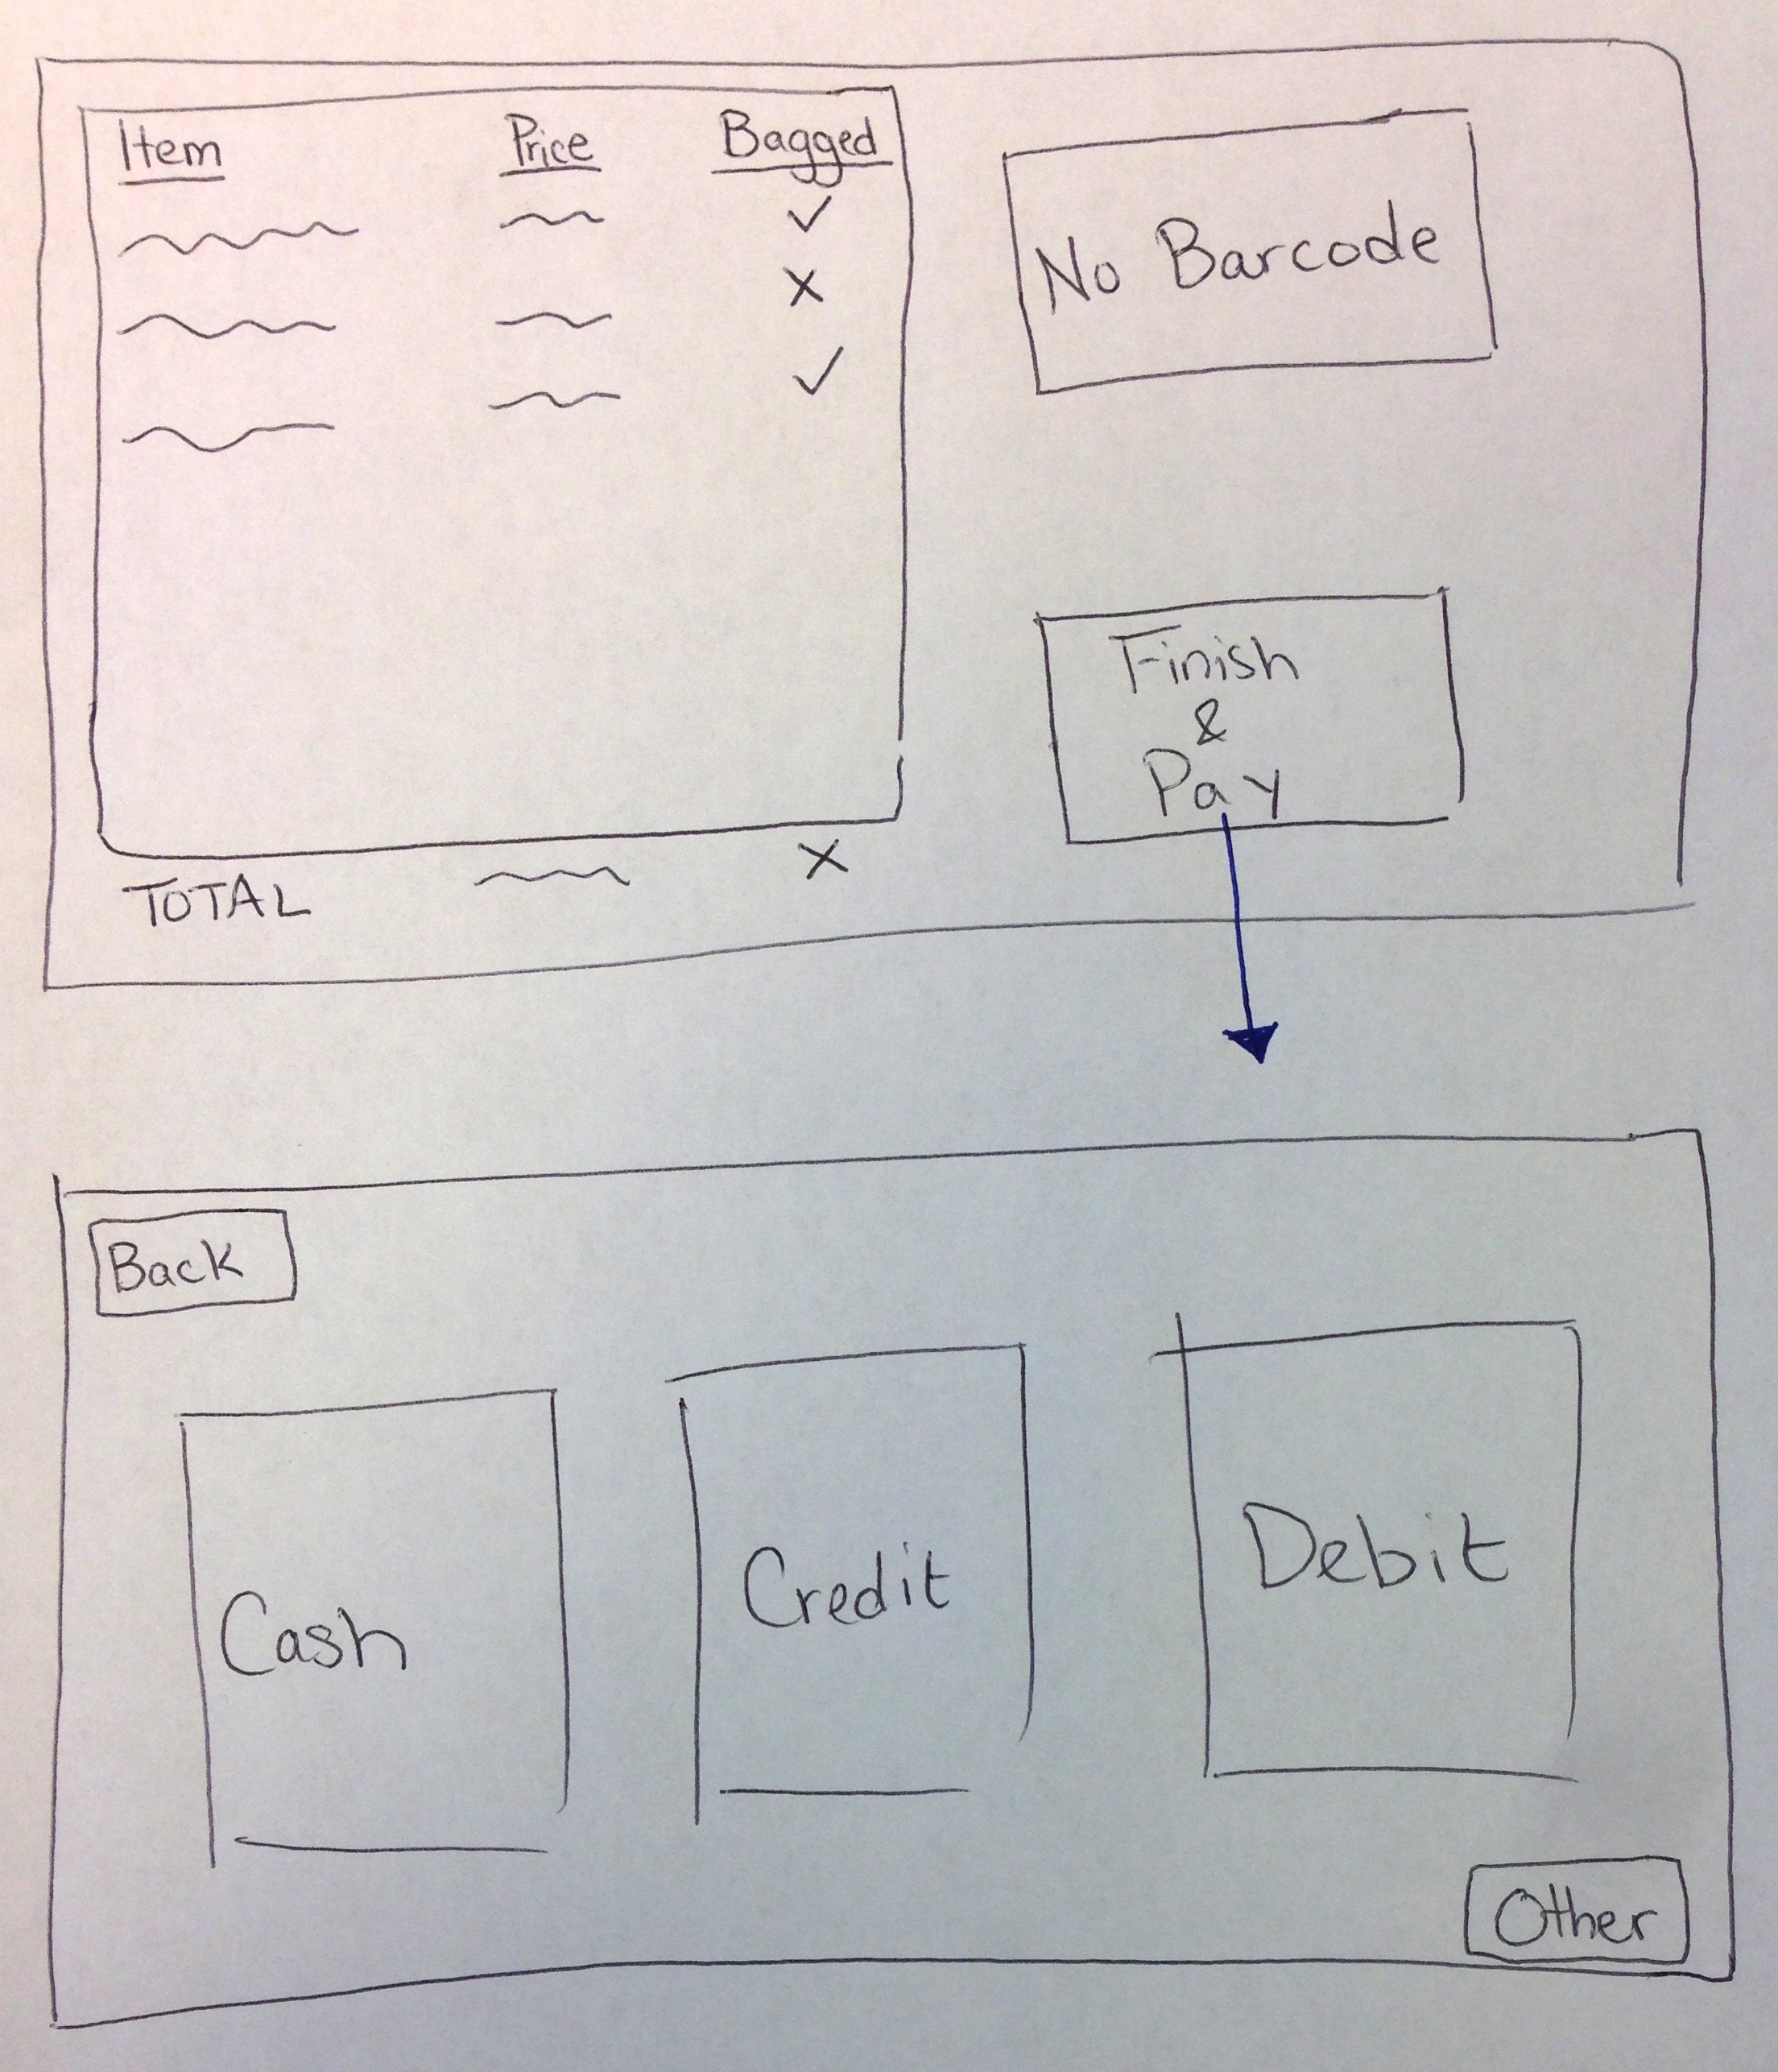 Item Price Bagged
✓
X
✓
TOTAL X
No Barcode
Finish
&
Pay
Back
Cash Credit Debit
Other